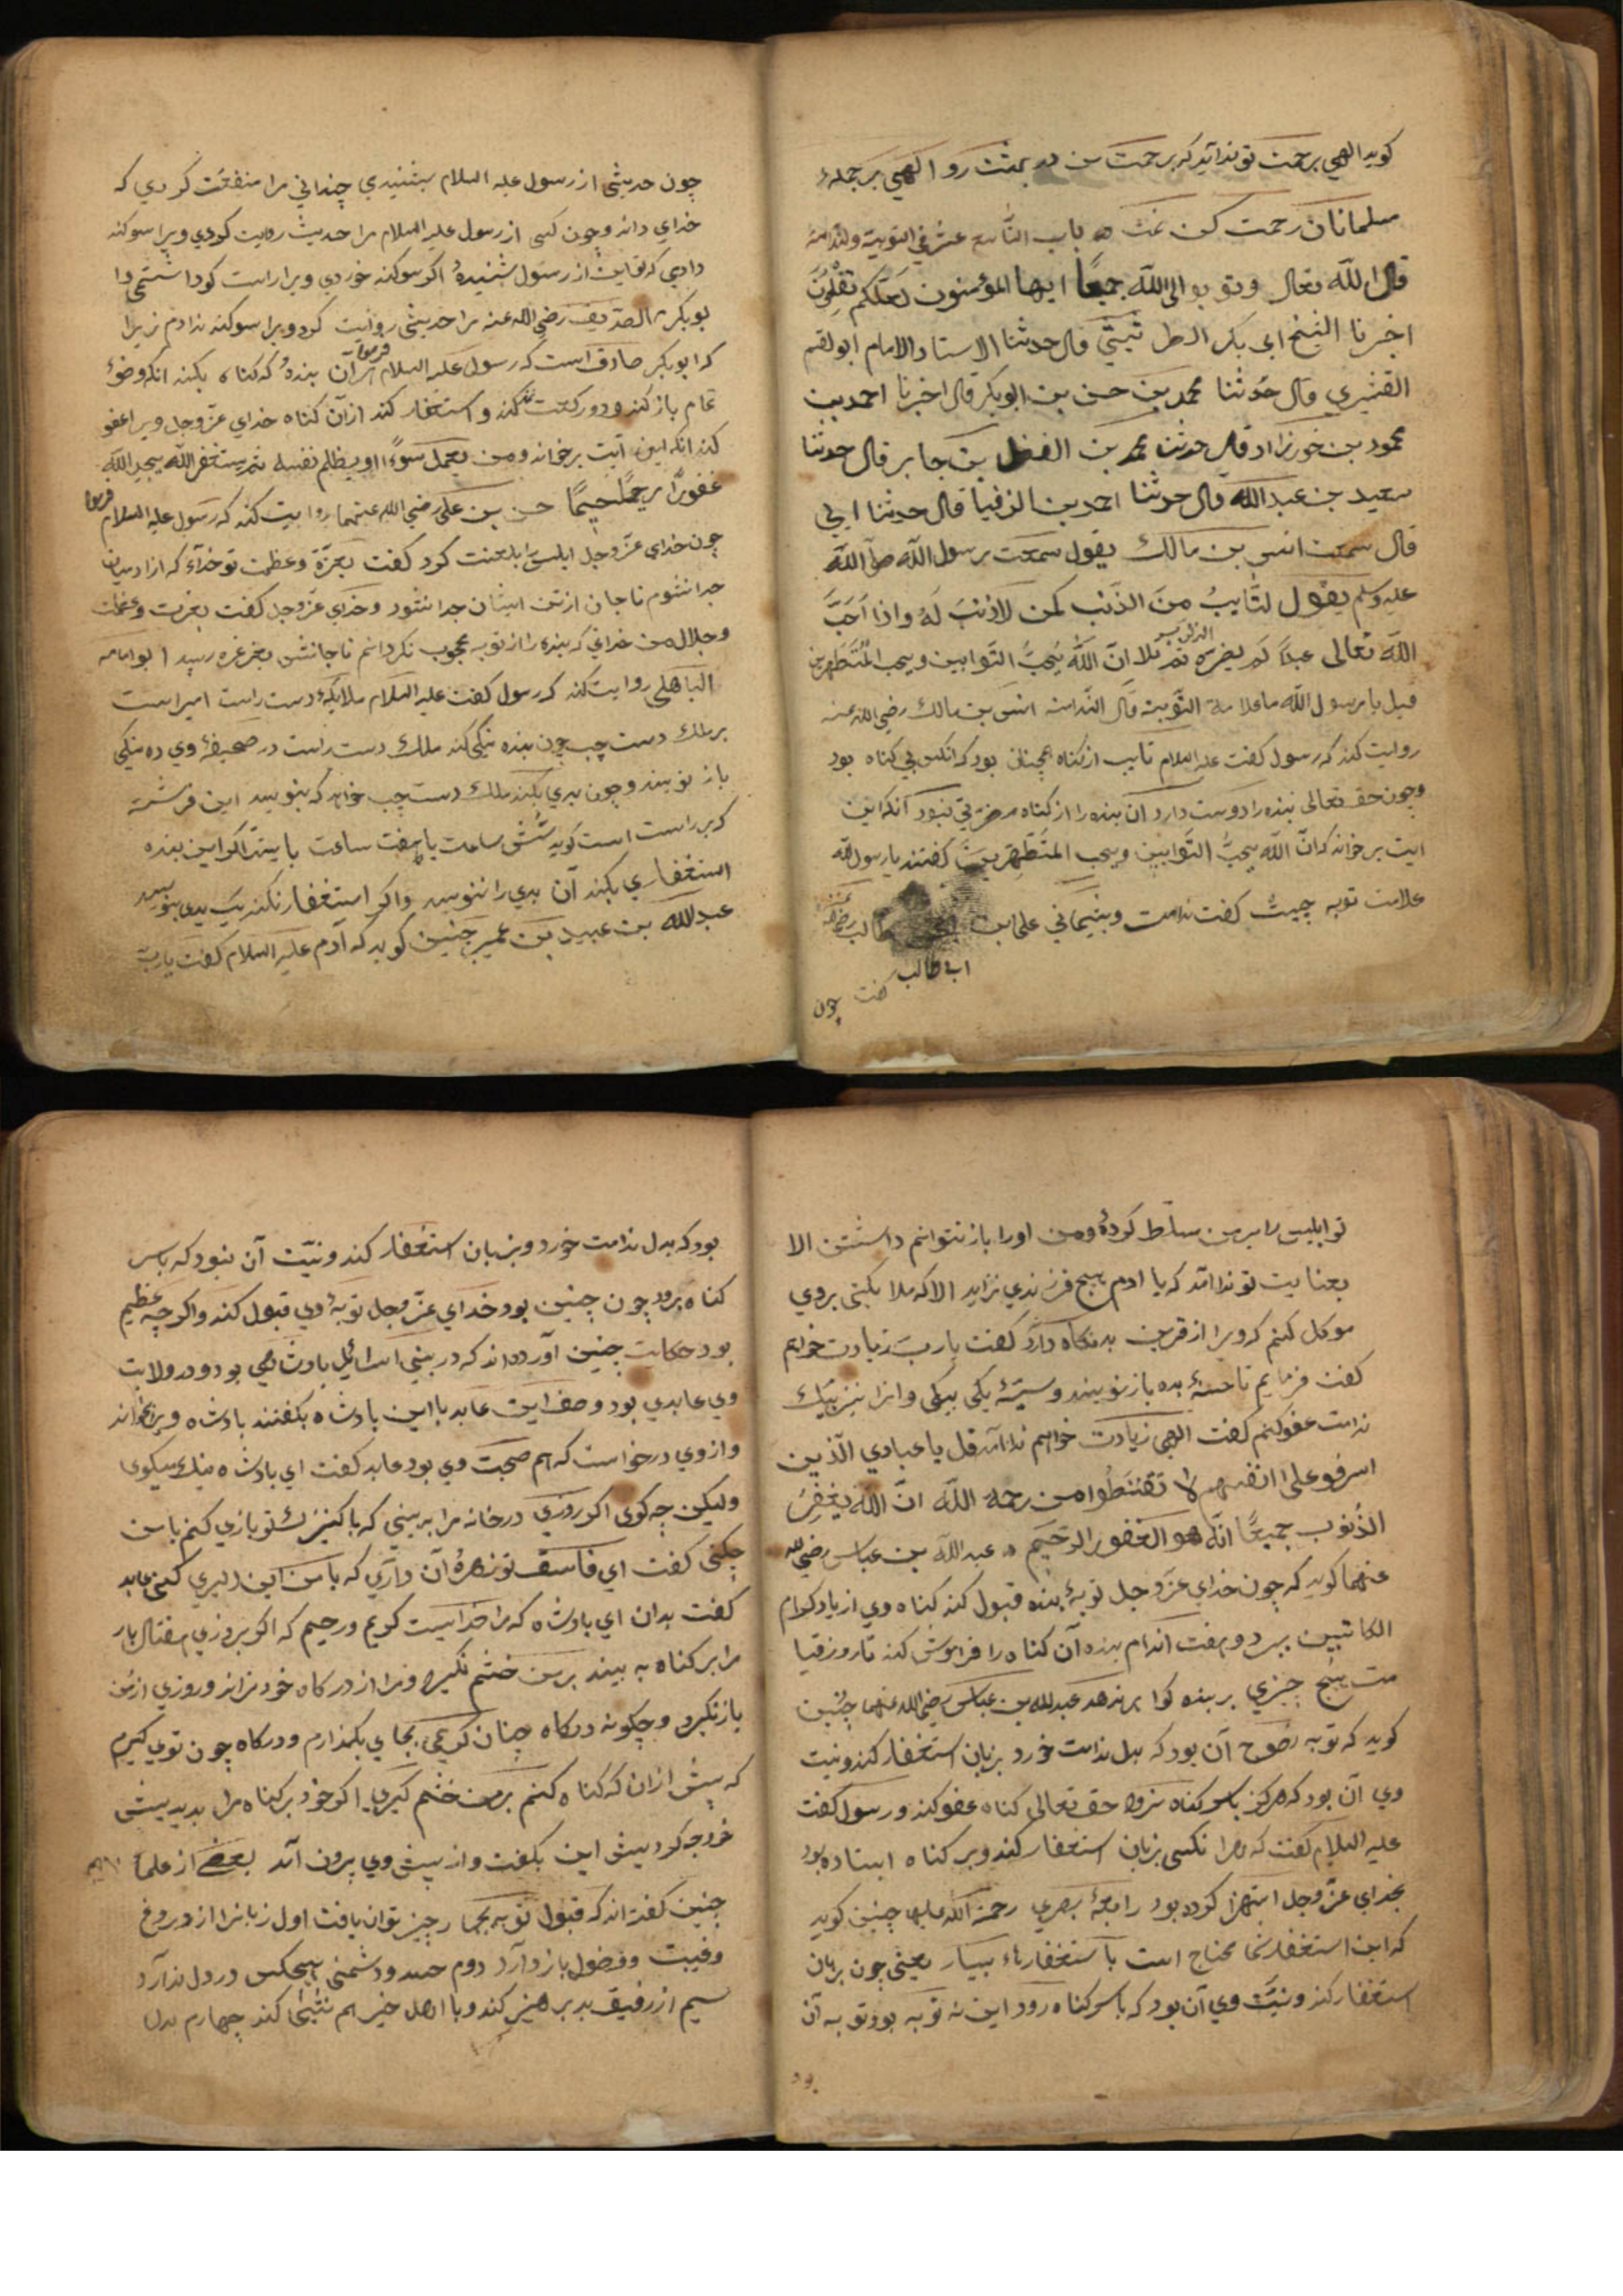 کوید الهی برحمت تو ندا آید که برحمت من در بهشت رو الهی بر جمله
مسلمانان رحمت کن تمت باب التاسع عشر فی التوبة والندامة
قال الله تعالی وتوبوا الی الله جمیعا ایها المؤمنون لعلکم تفلحون
اخبرنا الشیخ ابی بکر قال حدثنا الاستاد الامام ابو القسم
القشیری قال حدثنا محمد بن حسن بن ابو بکر قال اخبرنا احمد بن
محمود بن خورزاد قال حدثنا محمد بن الفضل بن جابر قال حدثنا
سعید بن عبد الله قال حدثنا احمد بن قال حدثنا ابی
قال سمعت انس بن مالک یقول سمعت رسول الله صلی الله
علیه وسلم یقول التایب من الذنب کمن لا ذنب له واذا احب
الله تعالی عبدا لم یضره الذنب ثم تلا ان الله یحب التوابین ویحب المتطهرین
قیل یا رسول الله ما علامة التوبة قال الندامة انس بن مالک رضی الله عنه
روایت کند که رسول کفت علیه السلام تایب از کناه همچنان بود که انکس بی کناه بود
وچون حق تعالی بنده را دوست دارد ان بنده را از کناه مضرتی نبود آنکه این
ایت بر خواند که ان الله یحب التوابین ویحب المتطهرین کفتند یا رسول الله
علامت توبه چیست کفت ندامت وپشیمانی علی ابن ابی طالب رضی الله عنه
ابی طالب
کفت چون
چون حدیثی از رسول علیه السلام بشنیدی چندانی مرا منفعت کردی که
خدای داند وچون کسی از رسول علیه السلام مرا حدیث روایت کردی ویرا سوکند
دادی که تو این از رسول شنیدهٔ اکر سوکند خوردی ویرا راست کو داشتمی وا
بو بکر الصدیق رضی الله عنه مرا حدیثی روایت کرد ویرا سوکند ندادم زیرا
که ابو بکر صادق است که رسول علیه السلام فرمود هر آن بندهٔ که کناه بکند انکه وضوء
تمام باز کند ودو رکعت نماز کند واستغفار کند از آن کناه خدای عز وجل ویرا عفو
کند انکه این آیت بر خواند ومن یعمل سوءا او یظلم نفسه ثم یستغفر الله یجد الله
غفورا رحیما حسن بن علی رضی الله عنهما روایت کند که رسول علیه السلام فرمود
چون خدای عز وجل ابلیس را بلعنت کرد کفت بعزة وعظمت تو خدای که از ادمیان
جدا نشوم تا جان از تن ایشان جدا نشود وخدای عز وجل کفت بعزت وعظمت
وجلال من خدای که بنده را از توبه محجوب نکردانم تا جانش بغرغره رسید ابو امامه
الباهلی روایت کند که رسول کفت علیه السلام ملایکهٔ دست راست امیر است
بر ملک دست چپ چون بنده نیکی کند ملک دست راست در صحیفهٔ وی ده نیکی
باز نویسد وچون بدی بکند ملک دست چپ خواهد که بنویسد این فرشته
که بر راست است کوید شش ساعت یا هفت ساعت بایست اکر این بنده
استغفاری بکند آن بدی را ننویسد واکر استغفار نکند یک بدی بنویسد
عبد الله بن عبید بن عمیر چنین کوید که آدم علیه السلام کفت یا رب
تو ابلیس را بر من مسلط کردهٔ ومن اورا باز نتوانم داشتن الا
بعنایت تو ندا آمد که یا ادم هیچ فرزندی نزاید الا که ملایکتی بروی
موکل کنیم که ویرا از قرین بد نکاه دارد کفت یا رب زیادت خواهم
کفت فرمایم تا حسنهٔ بده باز نویسند وسیئهٔ یکی بیکی وانرا نیز بیک
ندامت عفو کنم کفت الهی زیادت خواهم ندا آمد قل یا عبادی الذین
اسرفو علی انفسهم لا تقنطوا من رحمة الله ان الله یغفر
الذنوب جمیعا انه هو الغفور الرحیم عبد الله بن عباس رضی الله
عنهما کوید که چون خدای عز وجل توبهٔ بنده قبول کند کناه وی از یاد کرام
الکاتبین ببرد وهفت اندام بنده آن کناه را فراموش کند تا روز قیا
مت هیچ چیزی بر بنده کوا بر ندهد عبد الله بن عباس رضی الله عنهما چنین
کوید که توبه نصوح آن بود که بدل ندامت خورد بزبان استغفار کند ونیت
وی آن بود که هرکز باسر کناه نرود حق تعالی کناه عفو کند ورسول کفت
علیه السلام کفت که هر آنکسی بزبان استغفار کند وبر کناه استاده بود
بخدای عز وجل استهزا کرده بود رابعهٔ بصری رحمة الله علیها چنین کوید
که این استغفار شما محتاج است باستغفارهاء بسیار یعنی چون بزبان
استغفار کند ونیت وی آن بود که باسر کناه رود این نه توبه بود توبه آن
بود
بود که بدل ندامت خورد وبزبان استغفار کند ونیت آن نبود که باسر
کناه برود چون چنین بود خدای عز وجل توبهٔ وی قبول کند واکر چه عظیم
بود حکایت چنین آورده اند که در بنی اسرائیل پادشاهی بود ودر ولایت
وی عابدی بود وصف این عابد با این پادشاه بکفتند پادشاه ویرا بخواند
واز وی درخواست که هم صحبت وی بود عابد کفت ای پادشاه نیک میکوی
ولیکن چه کوی اکر روزی در خانه مرا به بینی که با کنیزک تو بازی کنم با من
چکنی کفت ای فاسق تو زهرهٔ آن داری که با من این دلیری کنی عابد
کفت بدان ای پادشاه که مرا خداییست کریم ورحیم که اکر بروزی هفتاد بار
مرا بر کناه به بیند بر من خشم نکیرد ومرا از درکاه خود نراند وروزی از من
باز نکیرد وچکونه درکاه چنان کریمی بجای بکذارم ودرکاه چون توی کیرم
که پیش از ان که کناه کنم بر من خشم کیری اکر خود بر کناه مرا بدیدی پیش
خود چه کردی پیش این بکفت واز پیش وی برون آمد بعضی از علما
چنین کفته اند که قبول توبه بچهار چیز توان یافت اول زبانرا از دروغ
وغیبت وفضول باز دارد دوم حسد ودشمنی هیچکس در دل ندارد
سیم از رفیق بد پرهیز کند وبا اهل خیر هم نشینی کند چهارم بدل